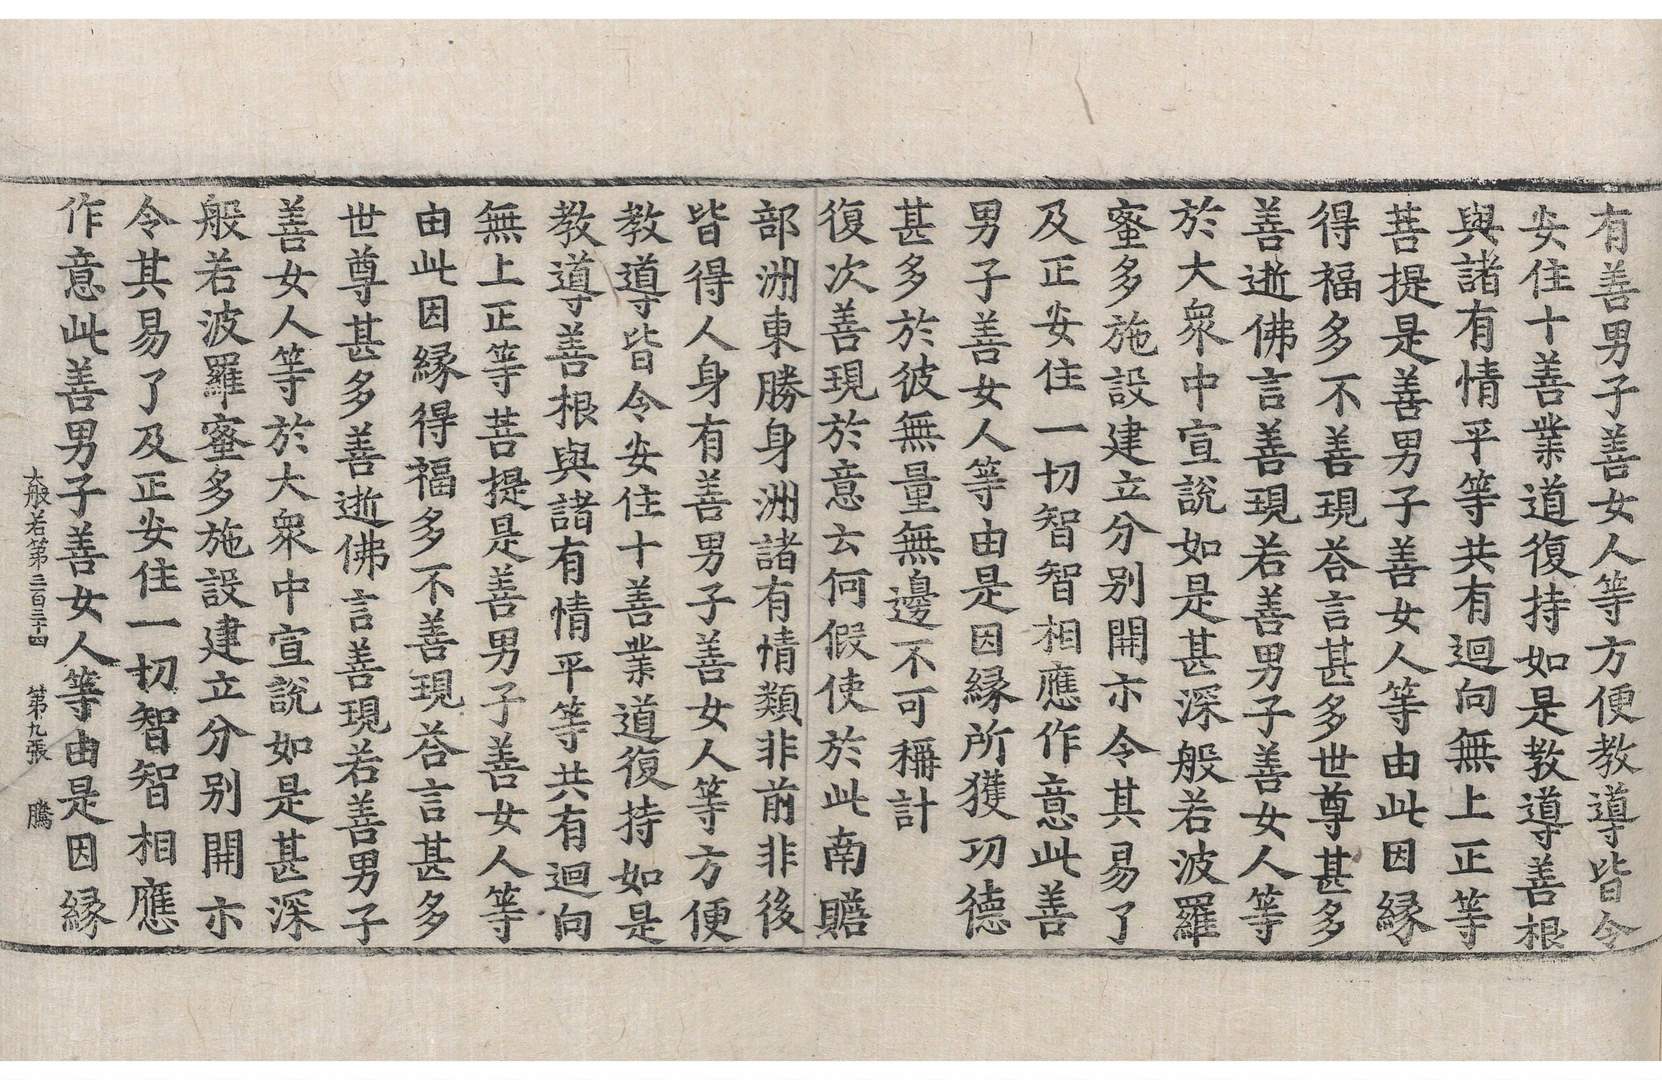 有善男子善女人等方便教導皆令
安住十善業道復持如是教導善根
與諸有情平等共有迴向無上正等
菩提是善男子善女人等由此因緣
得福多不善現荅言甚多世尊甚多
善逝佛言善現若善男子善女人等
於大衆中宣說如是甚深般若波羅
蜜多施設建立分別開示令其易了
及正安住一切智智相應作意此善
男子善女人等由是因緣所獲功德
甚多於彼無量無邊不可稱計
復次善現於意云何假使於此南贍
部洲東勝身洲諸有情類非前非後
皆得人身有善男子善女人等方便
教導皆令安住十善業道復持如是
教導善根與諸有情平等共有迴向
無上正等菩提是善男子善女人等
由此因緣得福多不善現荅言甚多
世尊甚多善逝佛言善現若善男子
善女人等於大衆中宣說如是甚深
般若波羅蜜多施設建立分別開示
令其易了及正安住一切智智相應
作意此善男子善女人等由是因緣
大般若第三百三十四 第九張 騰